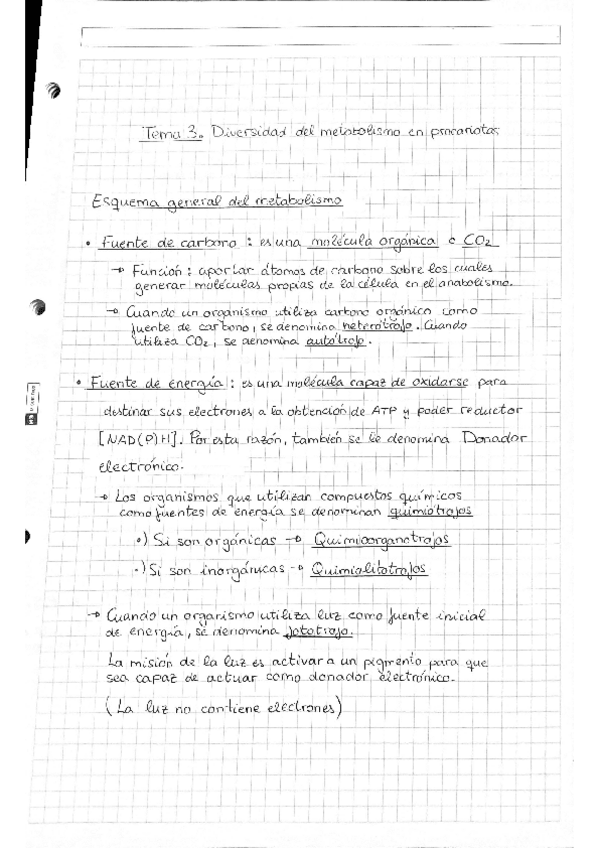 Tema 3. Diversidad del metabolismo en procariotas
Esquema general del metabolismo
• Fuente de carbono : es una molécula orgánica o CO2
→ Función : aportar átomos de carbono sobre los cuales
generar moléculas propias de la célula en el anabolismo.
→ Cuando un organismo utiliza carbono orgánico como
fuente de carbono, se denomina heterótrofo. Cuando
utiliza CO2, se denomina autótrofo.
• Fuente de energía : es una molécula capaz de oxidarse para
destinar sus electrones a la obtención de ATP y poder reductor
[NAD(P)H]. Por esta razón, también se le denomina Donador
electrónico.
→ Los organismos que utilizan compuestos químicos
como fuentes de energía se denominan quimiótrofos
•) Si son orgánicas → Quimioorganotrofos
•) Si son inorgánicas → Quimiolitotrofos
→ Cuando un organismo utiliza luz como fuente inicial
de energía, se denomina fototrofo.
La misión de la luz es activar a un pigmento para que
sea capaz de actuar como donador electrónico.
(La luz no contiene electrones)